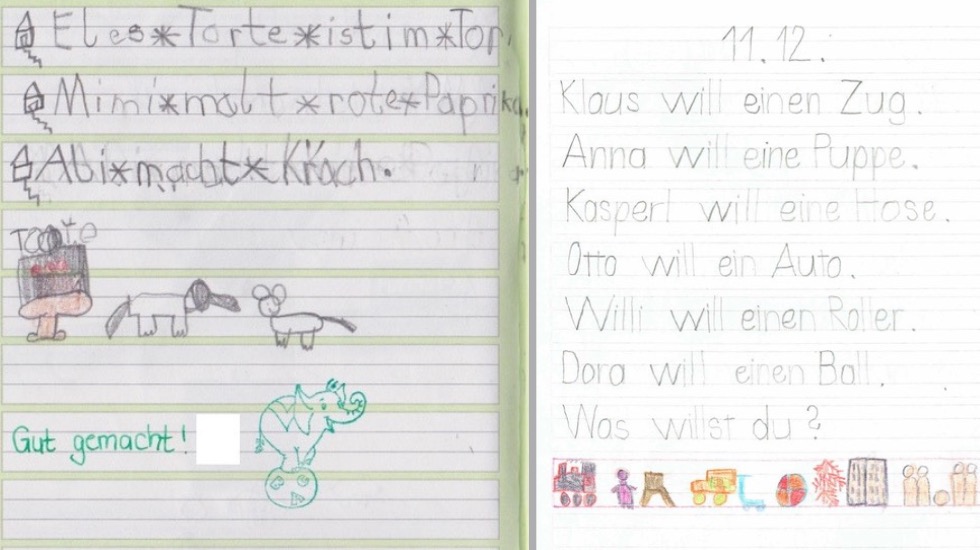 El es*Torte*ist im*Tor.
Mimi*malt*rote*Paprika.
macht*Krach.
Torte
Gut gemacht!
11.12.
Klaus will einen Zug.
Anna will eine Puppe.
Kasperl will eine Hose.
Otto will ein Auto.
Willi will einen Roller.
Dora will einen Ball.
Was willst du?